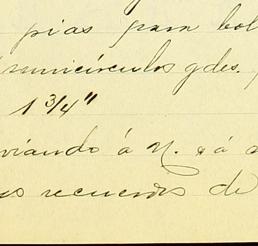 pias para bol
semicírculos gdes.
1 3/4"
viando á N. á
us recuerdos de